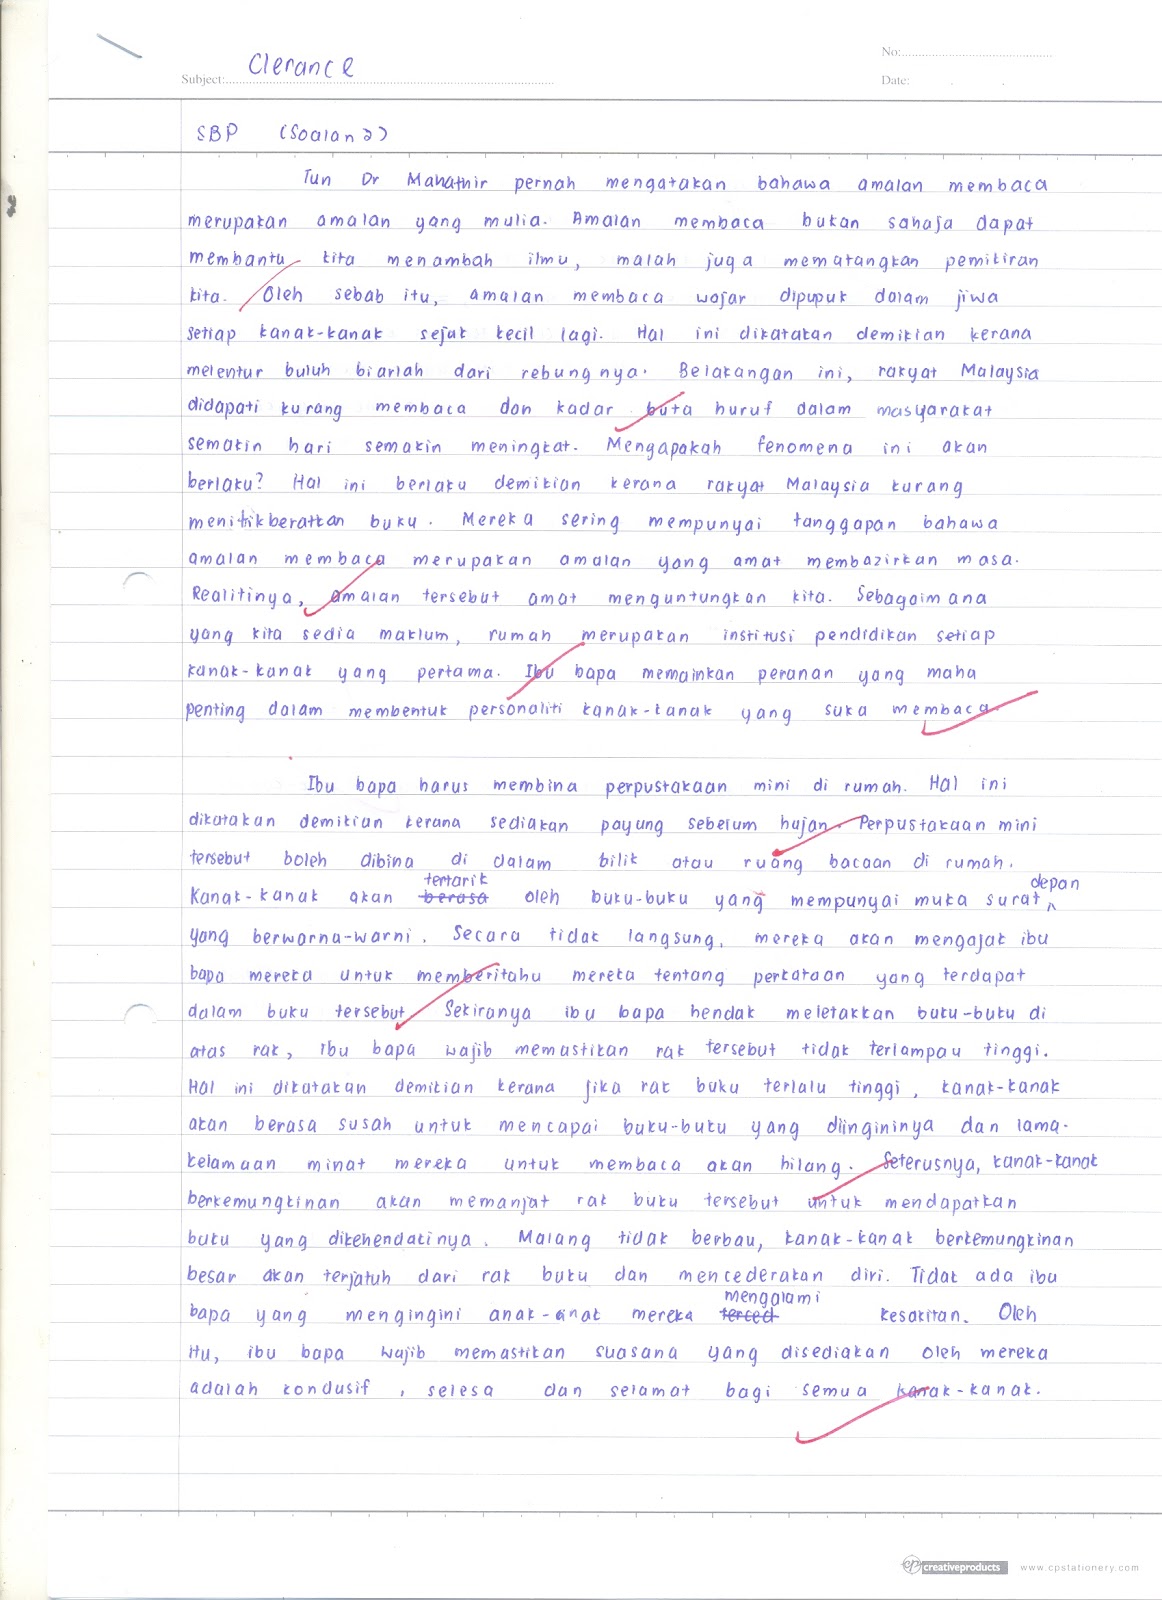 No:
Subject: Clerance
Date:
SBP (Soalan 2)
Tun Dr Mahathir pernah mengatakan bahawa amalan membaca
merupakan amalan yang mulia. Amalan membaca bukan sahaja dapat
membantu kita menambah ilmu, malah juga mematangkan pemikiran
kita. Oleh sebab itu, amalan membaca wajar dipupuk dalam jiwa
setiap kanak-kanak sejak kecil lagi. Hal ini dikatakan demikian kerana
melentur buluh biarlah dari rebungnya. Belakangan ini, rakyat Malaysia
didapati kurang membaca dan kadar buta huruf dalam masyarakat
semakin hari semakin meningkat. Mengapakah fenomena ini akan
berlaku? Hal ini berlaku demikian kerana rakyat Malaysia kurang
menitikberatkan buku. Mereka sering mempunyai tanggapan bahawa
amalan membaca merupakan amalan yang amat membazirkan masa.
Realitinya, amalan tersebut amat menguntungkan kita. Sebagaimana
yang kita sedia maklum, rumah merupakan institusi pendidikan setiap
kanak-kanak yang pertama. Ibu bapa memainkan peranan yang maha
penting dalam membentuk personaliti kanak-kanak yang suka membaca.
Ibu bapa harus membina perpustakaan mini di rumah. Hal ini
dikatakan demikian kerana sediakan payung sebelum hujan. Perpustakaan mini
tersebut boleh dibina di dalam bilik atau ruang bacaan di rumah.
Kanak-kanak akan berasa tertarik oleh buku-buku yang mempunyai muka surat depan
yang berwarna-warni. Secara tidak langsung, mereka akan mengajak ibu
bapa mereka untuk memberitahu mereka tentang perkataan yang terdapat
dalam buku tersebut. Sekiranya ibu bapa hendak meletakkan buku-buku di
atas rak, ibu bapa wajib memastikan rak tersebut tidak terlampau tinggi.
Hal ini dikatakan demikian kerana jika rak buku terlalu tinggi, kanak-kanak
akan berasa susah untuk mencapai buku-buku yang diingininya dan lama-
kelamaan minat mereka untuk membaca akan hilang. Seterusnya, kanak-kanak
berkemungkinan akan memanjat rak buku tersebut untuk mendapatkan
buku yang dikehendakinya. Malang tidak berbau, kanak-kanak berkemungkinan
besar akan terjatuh dari rak buku dan mencederakan diri. Tidak ada ibu
bapa yang mengingini anak-anak mereka terced mengalami kesakitan. Oleh
itu, ibu bapa wajib memastikan suasana yang disediakan oleh mereka
adalah kondusif, selesa dan selamat bagi semua kanak-kanak.
cp creativeproducts www.cpstationery.com